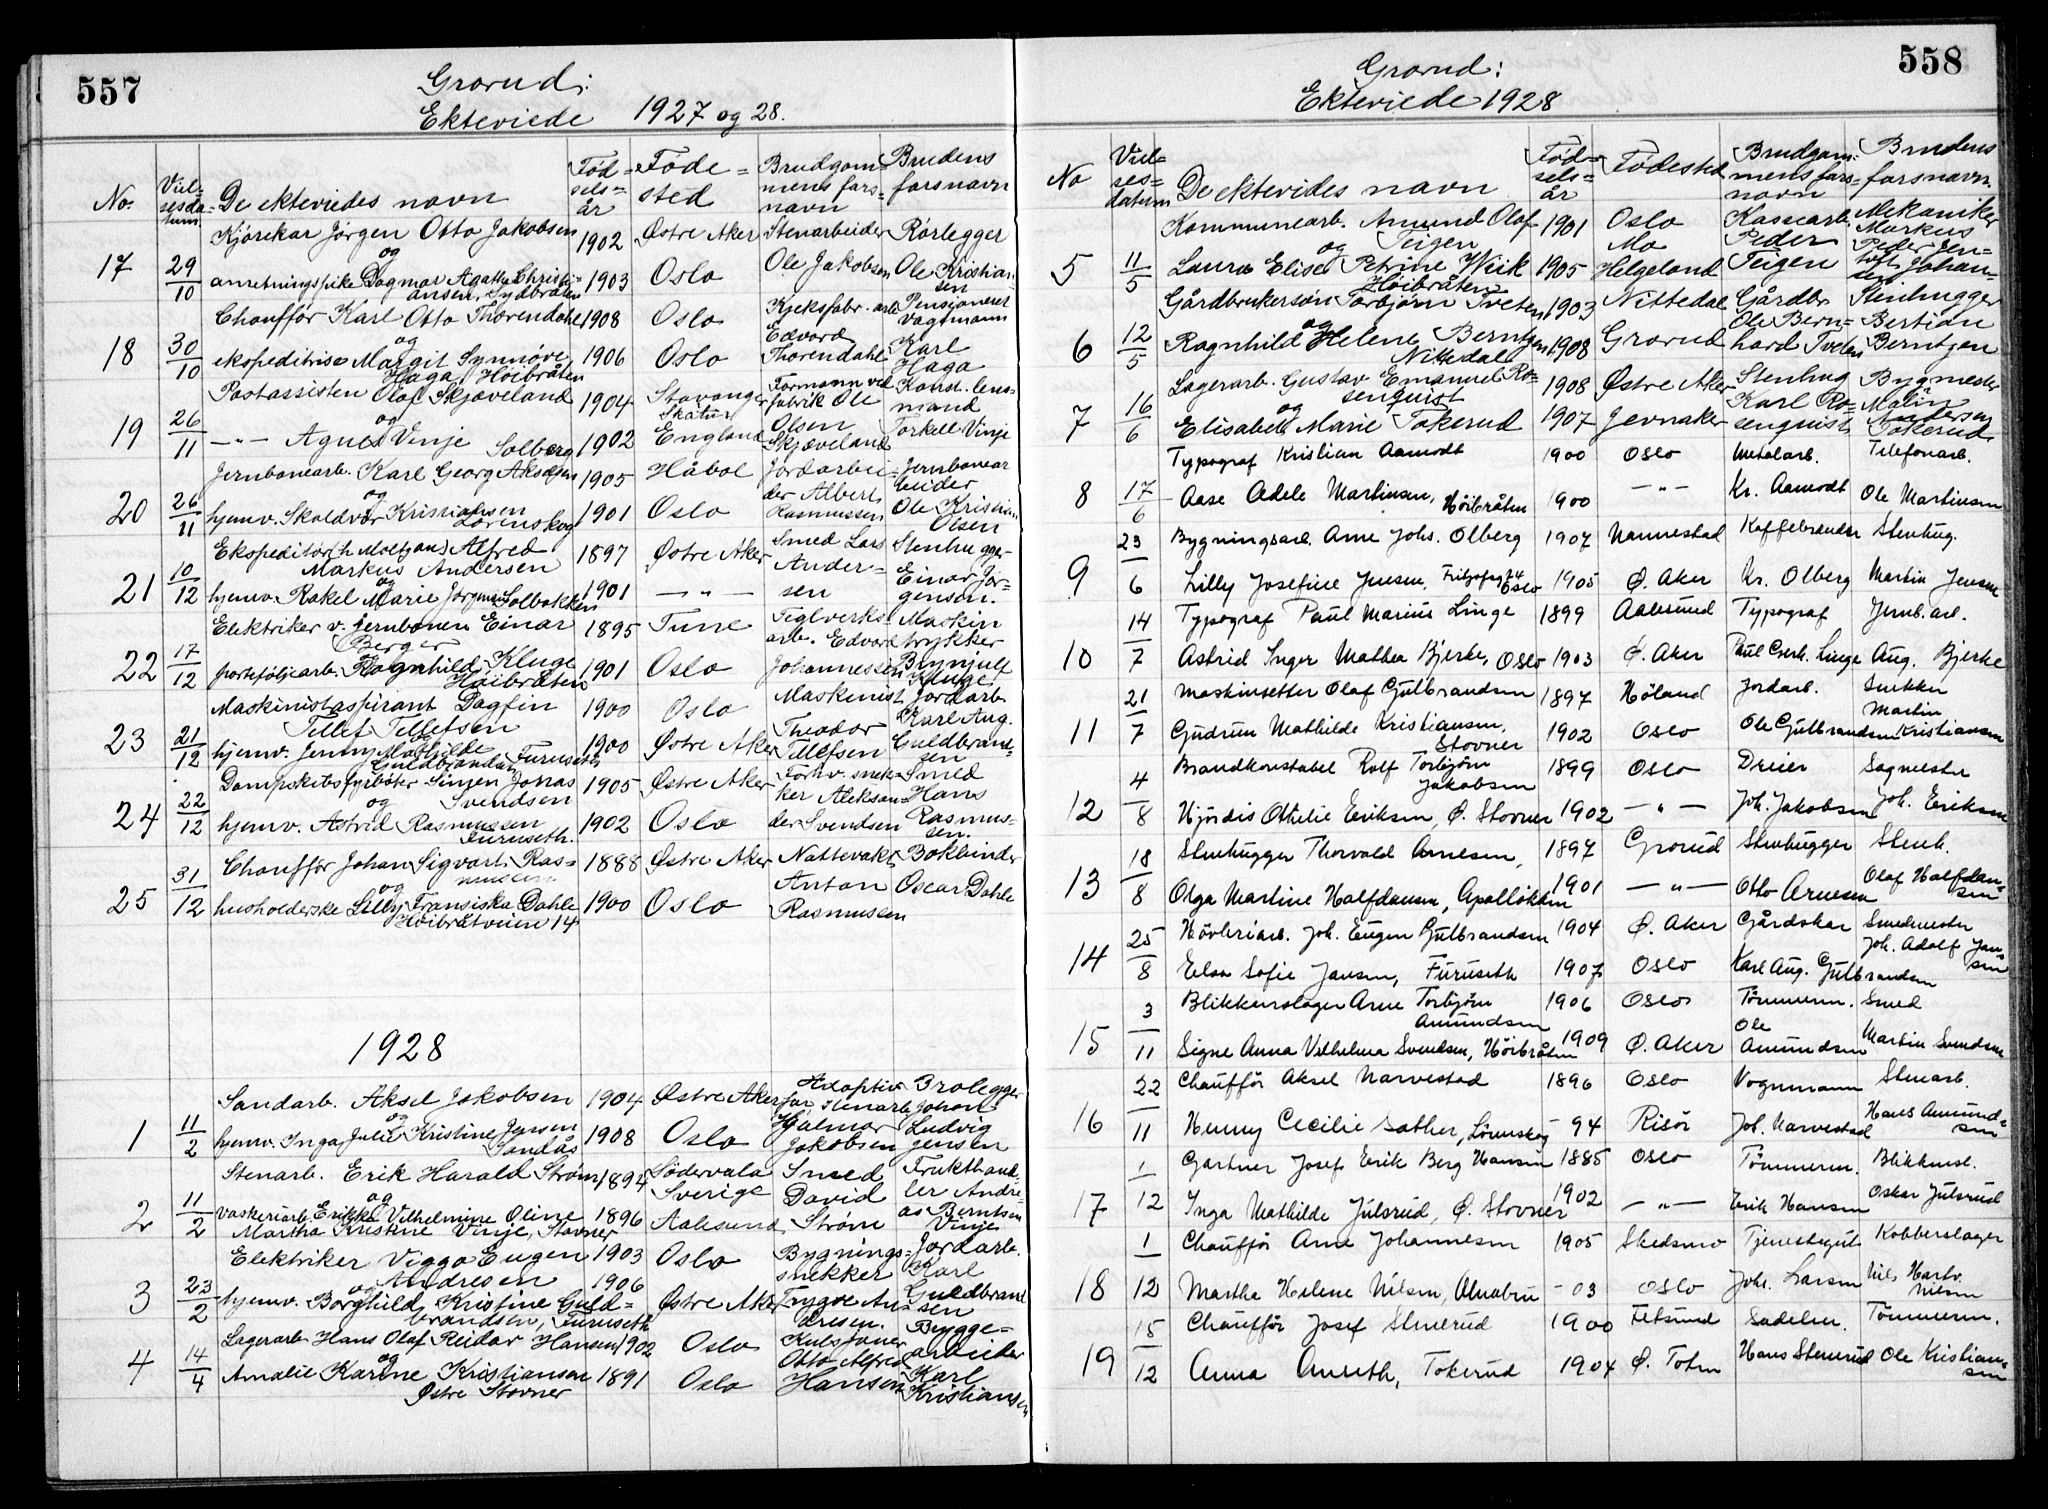 557
Grorud:
Ekteviede 1927 og 28.
No. Vielsesdatum De ekteviedes navn Fødselsår Fødested Brudgommens farsnavn Brudens farsnavn
17 29/10 Kjørekar Jørgen Otto Jakobsen 1902 Østre Aker Stenarbeider Ole Jakobsen Rørlegger Ole Kristiansen
og
anretningspike Dagmar Agathe Christiansen, Sydbråten 1903 Oslo
18 30/10 Chauffør Karl Otto Thorendahl 1908 Oslo Kjeksfabr. arb. Edvard Thorendahl Pensjoneret vagtmann Karl Haga
og
ekspeditrise Margit Synnøve Haga Høibråten 1906 Oslo
19 26/11 Postassistent Olaf Skjæveland 1904 Stavanger Formann ved fabrik Ole Olsen Skjæveland Konst. lensmand Torkell Vinje
og
—"— Agnes Vinje Solberg 1902 England
20 26/11 Jernbanearb. Karl Georg Akselsen 1905 Håbol Jordarbeider Albert Rasmussen Jernbanearbeider Ole Kristian Olsen
og
hjemv. Skoldvor Kristiansen Lørenskog 1901 Oslo
21 10/12 Ekspeditør (h. Moltzau) Alfred Markus Andersen 1897 Østre Aker Smed Lars Andersen Stenhugger Einar Jørgensen.
og
hjemv. Rakel Marie Jørgensen Solbakken 1901 —"—
22 17/12 Elektriker v. jernbanen Einar Berger 1895 Tune Teglverksarb. Edvard Johannessen Maskintrykker Brynjulf Kluge
og
porteføljearb. Ragnhild Kluge Høibråten 1901 Oslo
23 21/12 Maskinistaspirant Dagfin Tellef Tellefsen 1900 Oslo Maskinist Theodor Tellefsen Jordarb. Karl Aug. Guldbrandsen
og
hjemv. Jenny Mathilde Guldbrandsen Furuseth 1900 Østre Aker
24 22/12 Dampskibsfyrbøter Simen Jonas Svendsen 1905 Østre Aker Forhv. snekker Aleksander Svendsen Smed Hans Rasmussen.
og
hjemv. Astrid Rasmussen Furuseth. 1902 Oslo
25 31/12 Chauffør Johan Sigvart Rasmussen 1888 Østre Aker Nattevakt Anton Rasmussen Bokbinder Oscar Dahle
og
husholderske Lilly Fransiska Dahle Høibråtveien 14 1900 Oslo
1928
1 11/2 Sandarb. Aksel Jakobsen 1904 Østre Aker Adoptivfar Stenarb. Hjalmar Jakobsen Brolegger Johan Ludvig Jensen
og
hjemv. Inga Julie Kristine Jensen Sandås 1908 Oslo
2 11/2 Stenarb. Erik Harald Strøm 1894 Södervala Sverige Smed David Strøm Frukthandler Andreas Berntsen Vinje
og
vaskeriarb. Erikka Vilhelmine Oline Martha Kristine Vinje, Stovner 1896 Aalesund
3 23/2 Elektriker Viggo Eugen Andresen 1903 Oslo Bygningssnekker Trygve Andresen. Jordarb. Karl Guldbrandsen
og
hjemv. Borghild Kristine Guldbrandsen, Furuseth 1906 Østre Aker
4 14/4 Lagerarb. Hans Olaf Reidar Hansen 1902 Oslo Kulsjauer Otto Alfred Hansen Bryggearbeider Karl Kristiansen
og
Amalie Karine Kristiansen Østre Stovner 1891 Oslo
558
Grorud:
Ekteviede 1928
No Vielsesdatum De ektevides navn Fødselsår Fødested Brudgommens farsnavn Brudens farsnavn.
5 11/5 Kommunearb. Amund Olaf Teigen 1901 Oslo Kassearb. Peder Teigen Mekaniker Markus Peder Johansen
og
Laura Elise Petrine Weik Høibråten 1905 Mo Helgeland
6 12/5 Gårdbrukersøn Torbjørn Tveten 1903 Nittedal Gårdbr. Ole Bernhard Tveten Stenhugger Bertian Berntzen
og
Ragnhild Helene Berntzen Nittedal 1908 Grorud
7 16/6 Lagerarb. Gustav Emanuel Rosenquist 1908 Østre Aker Stenhug Karl Rosenquist Bygmester Malin Andersen Tokerud
og
Elisabeth Marie Tokerud 1907 Jevnaker
8 17/6 Typograf Kristian Aamodt 1900 Oslo Metalarb. Kr. Aamodt Telefonarb. Ole Martinsen
Aase Adele Martinsen, Høibråten 1900 —"—
9 23/6 Bygningsarb. Arne Johs. Olberg 1907 Nannestad Kaffebrænder Kr. Olberg Stenhug. Martin Jensen
Lilly Josefine Jensen. Oslo 1905 Ø. Aker
10 14/7 Typograf Paul Marius Linge 1899 Aalesund Typograf Jernb. arb.
Astrid Inger Mathea Bjerke, Oslo 1903 Ø. Aker Linge Aug. Bjerke
11 21/7 Maskinsetter Olaf Gulbrandsen 1897 Høland Jordarb. Ole Gulbrandsen Snekker Martin Kristiansen
Gudrun Mathilde Kristiansen, Stovner 1902 Oslo
12 4/8 Brandkonstabel Rolf Torbjørn Jakobsen 1899 Oslo Dreier Joh. Jakobsen Sagmester Joh. Eriksen
Hjørdis Othelie Eriksen, Ø. Stovner 1902 —"—
13 18/8 Stenhugger Thorvald Arnesen, 1897 Grorud Stenhugger Otto Arnesen Stenh. Olaf Halfdansen
Olga Martine Halfdansen, Apalløkken 1901 —"—
14 25/8 Høvleriarb. Joh. Eugen Gulbrandsen 1904 Ø. Aker Gårdskar Karl Aug. Gulbrandsen Smedmester Joh. Adolf Jansen
Elsa Sofie Jansen, Furuseth 1907 Oslo
15 3/11 Blikkenslager Arne Torbjørn Amundsen 1906 Oslo Tømmerm. Ole Amundsen Smed Martin Svendsen
Signe Anna Vilhelma Svendsen, Høibråten 1909 Ø. Aker
16 22/11 Chauffør Aksel Narvestad 1896 Oslo Vognmann Joh. Narvestad Stenarb. Hans Amundsen
Henny Cecilie Sather, Lørenskog - 94 Risør
17 1/12 Gartner Josef Erik Berg Hansen 1885 Oslo Tømmerm. Erik Hansen Blikkensl. Oskar Julsrud
Inga Mathilde Julsrud, Ø. Stovner 1902 —"—
18 1/12 Chauffør Arne Johannesen 1905 Skedsmo Tjenestegut Joh. Larsen Kobberslager Nils Hartv. Nilsen
Martha Helene Nilsen, Alnabru - 03 Oslo
19 15/12 Chauffør Josef Stenerud 1900 Fetsund Sadelm. Hans Stenerud Tømmerm. Ole Kristiansen
Anna Anseth, Tokerud 1904 Ø. Toten